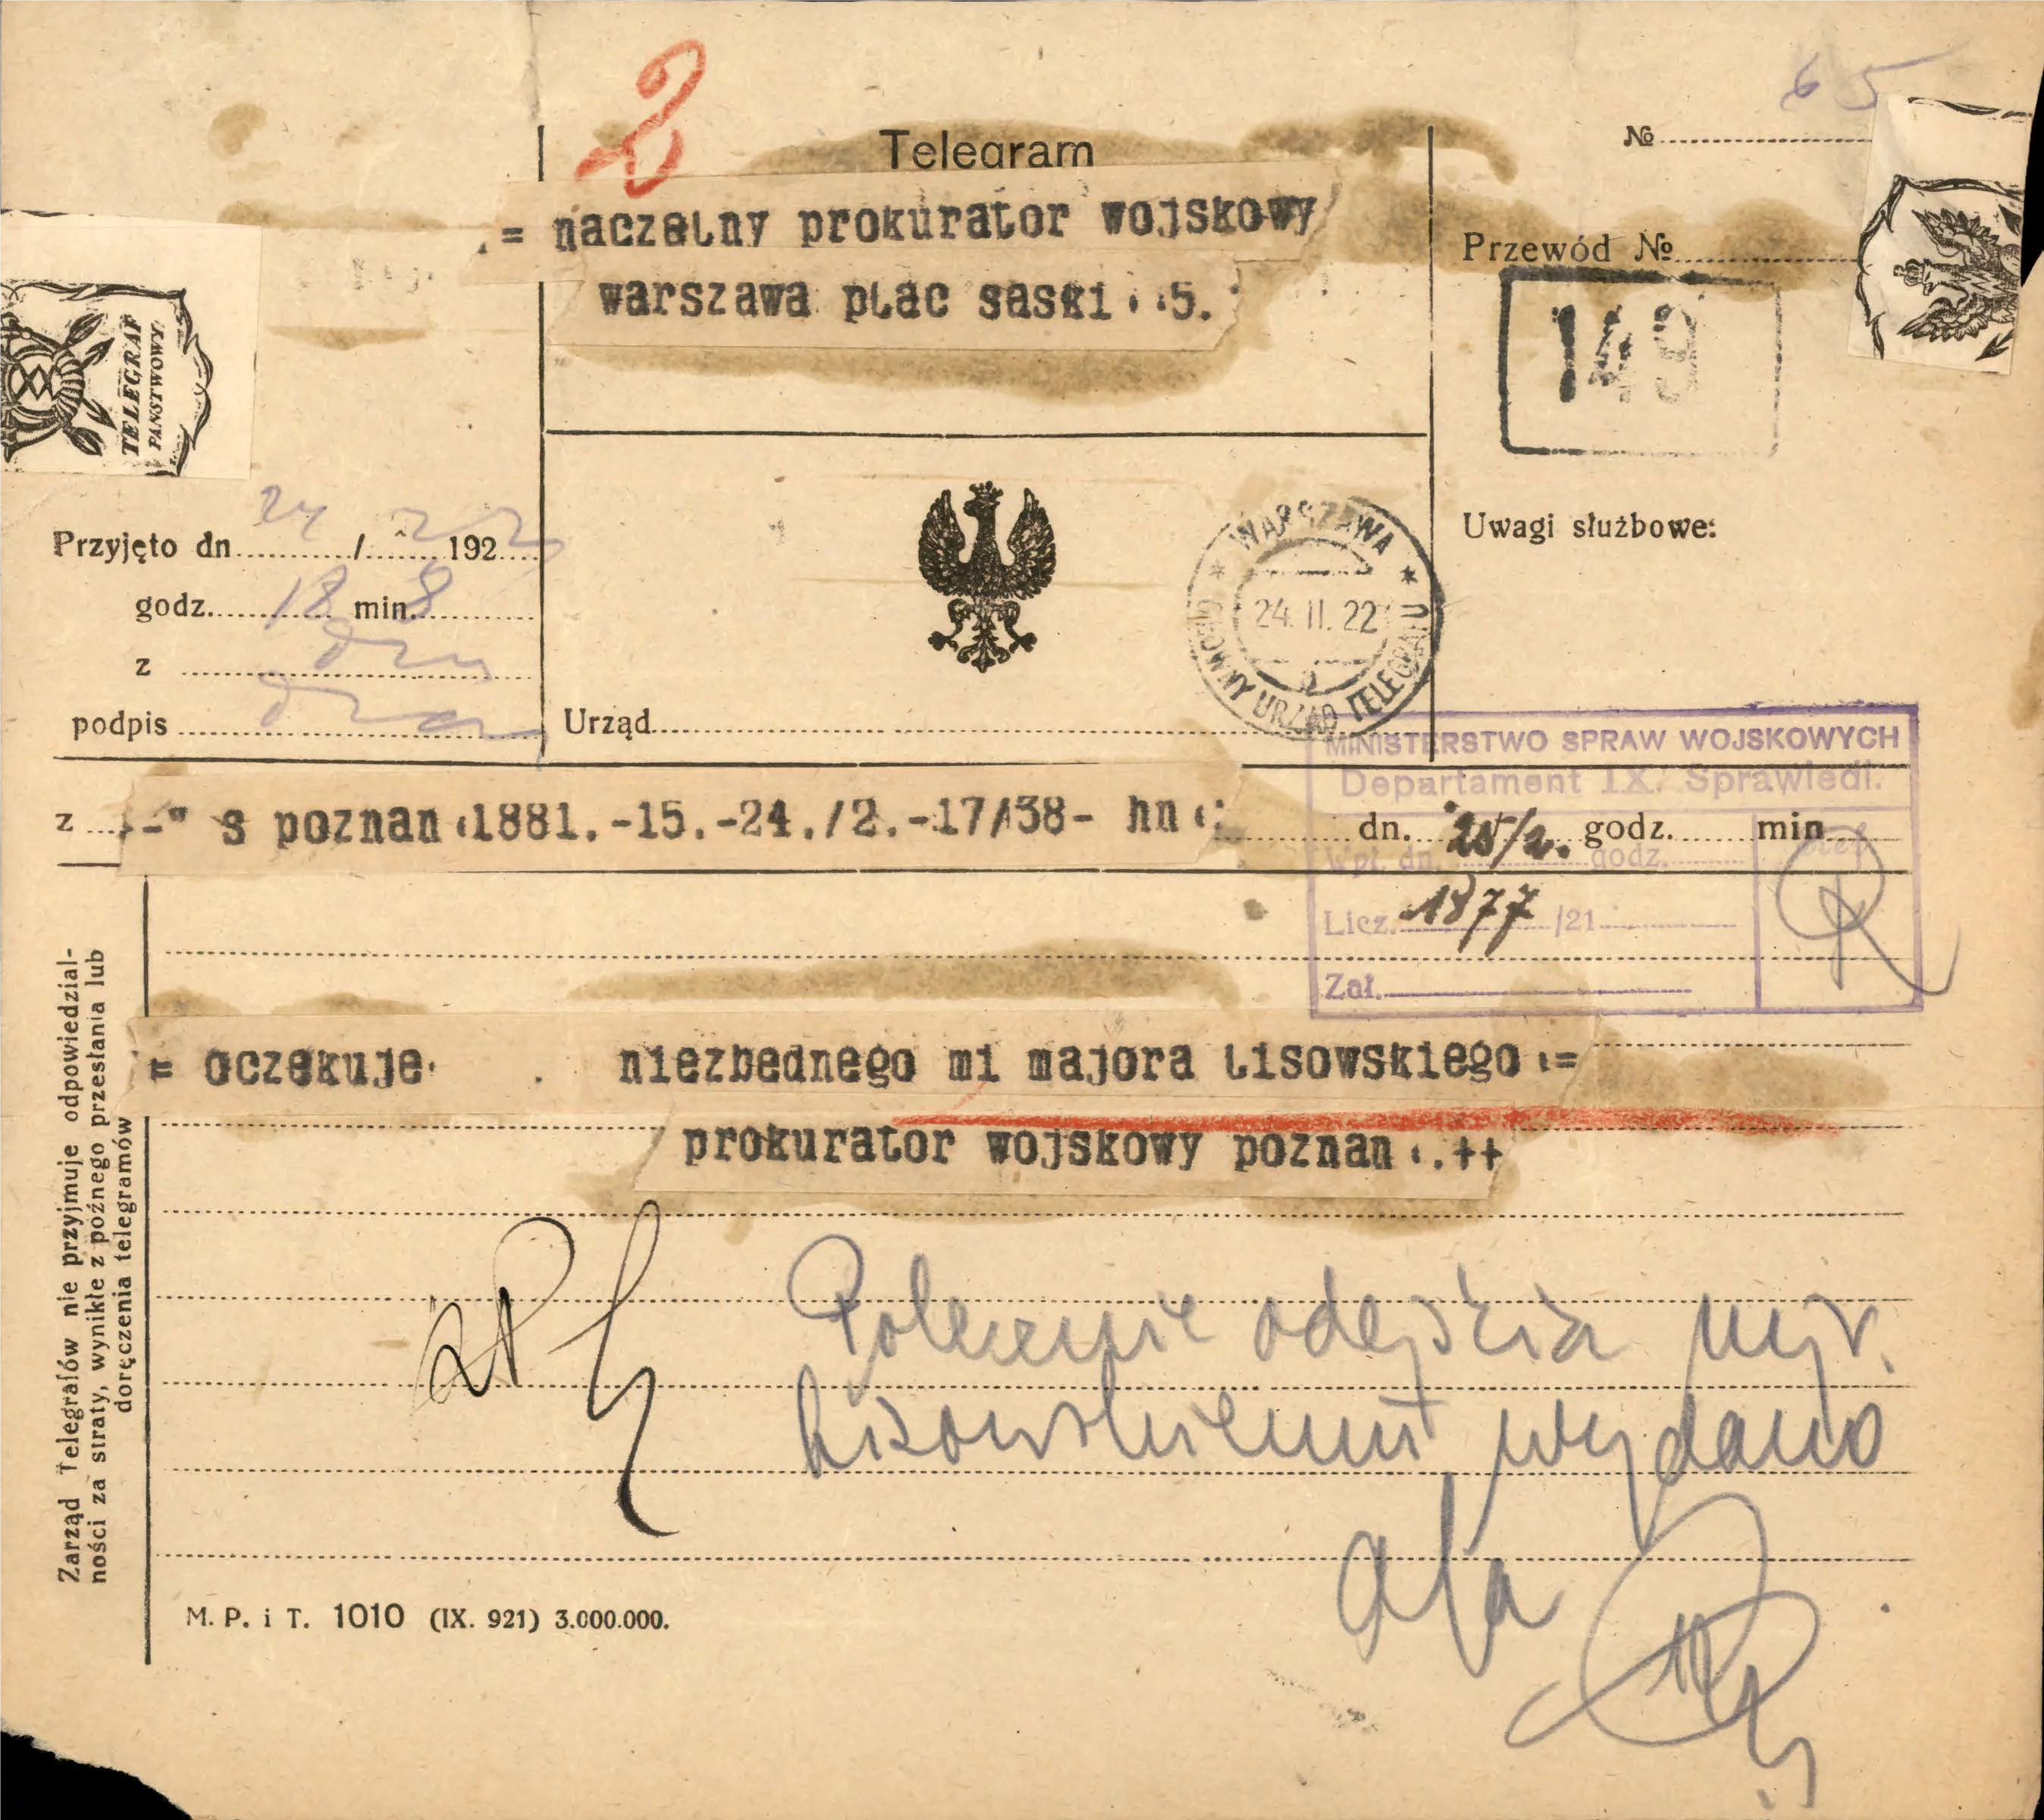 65
2
Telegram
№
= naczelny prokurator wojskowy
warszawa plac saski 5.
Przewód №
149
TELEGRAF
PAŃSTWOWY
Przyjęto dn. 24 / 2 1922
godz. 18 min. 8
z
podpis
Urząd
WARSZAWA
24. II. 22
GŁÓWNY URZĄD TELEGRAFU
Uwagi służbowe:
MINISTERSTWO SPRAW WOJSKOWYCH
Departament IX. Sprawiedl.
z s poznan 1881.-15.-24./2.-17/38- hn
dn. godz. min
Wpł. dn. 25/2. godz.
Licz. 1877 /21
Zał.
= oczekuje niezbednego mi majora lisowskiego =
prokurator wojskowy poznan .++
Polecenie odejścia mjr.
Lisowskiemu wydano
a/a
Zarząd Telegrafów nie przyjmuje odpowiedzial-
ności za straty, wynikłe z późnego przesłania lub
doręczenia telegramów
M. P. i T. 1010 (IX. 921) 3.000.000.